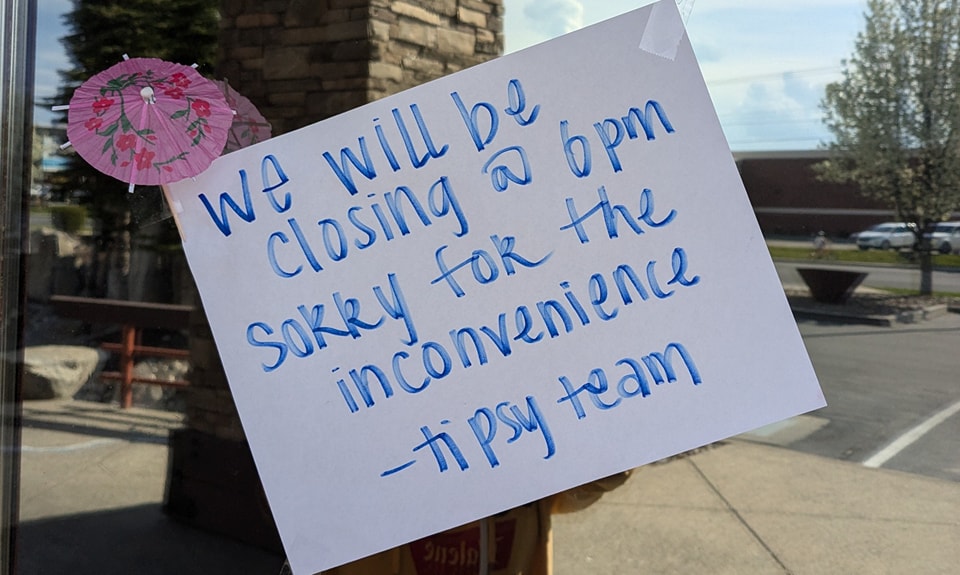 we will be
closing @ 6pm
sorry for the
inconvenience
-tipsy team